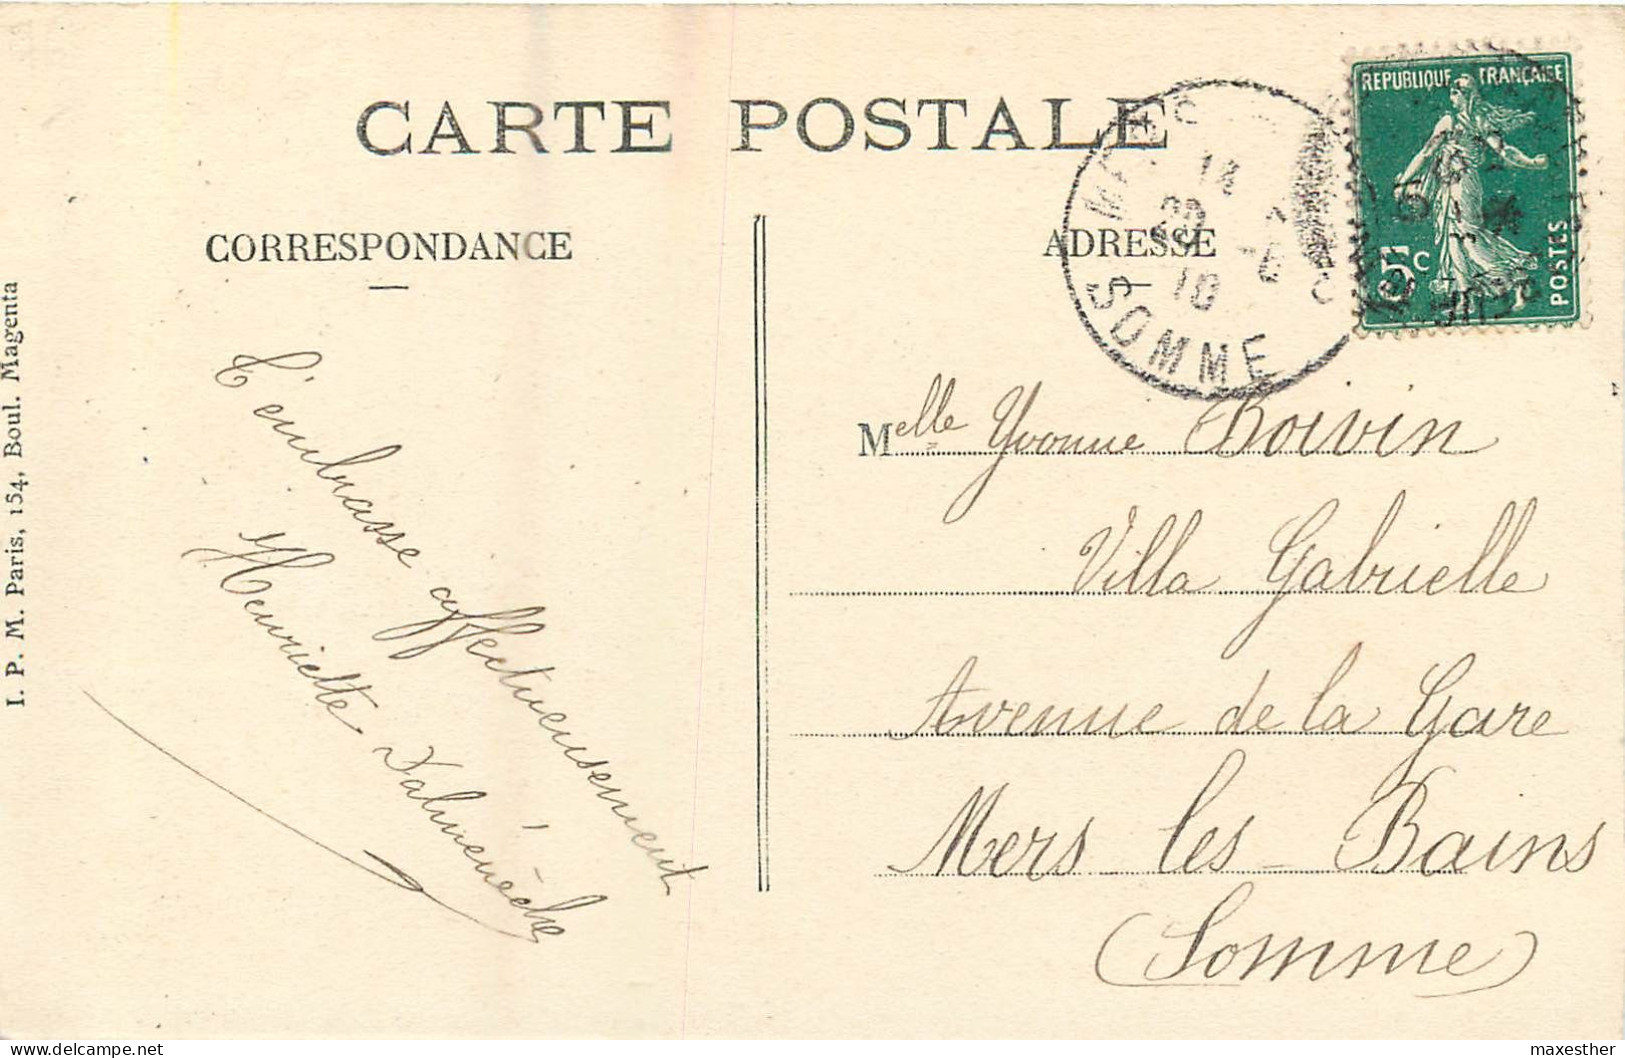 CARTE POSTALE
CORRESPONDANCE
ADRESSE
REPUBLIQUE FRANÇAISE
5c
POSTES
SOMME
T'embrasse affectueusement
Henriette
Melle Yvonne Boivin
Villa Gabrielle
Avenue de la Gare
Mers les Bains
(Somme)
I. P. M. Paris, 154, Boul. Magenta
delcampe.net
maxesther